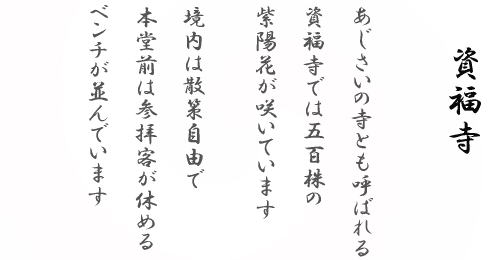 資福寺
あじさいの寺とも呼ばれる
資福寺では五百株の
紫陽花が咲いています
境内は散策自由で
本堂前は参拝客が休める
ベンチが並んでいます